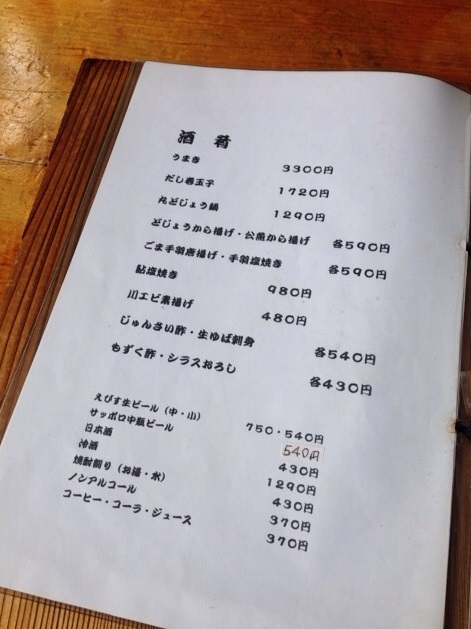 酒肴
うまき 3300円
だし巻玉子 1720円
丸どじょう鍋 1290円
どじょうから揚げ・公魚から揚げ 各590円
ごま手羽唐揚げ・手羽塩焼き 各590円
鮎塩焼き 980円
川エビ素揚げ 480円
じゅんさい酢・生ゆば刺身 各540円
もずく酢・シラスおろし 各430円
えびす生ビール（中・小） 750・540円
サッポロ中瓶ビール 540円
日本酒 430円
冷酒 1290円
焼酎割り（お湯・水） 430円
ノンアルコール 370円
コーヒー・コーラ・ジュース 370円